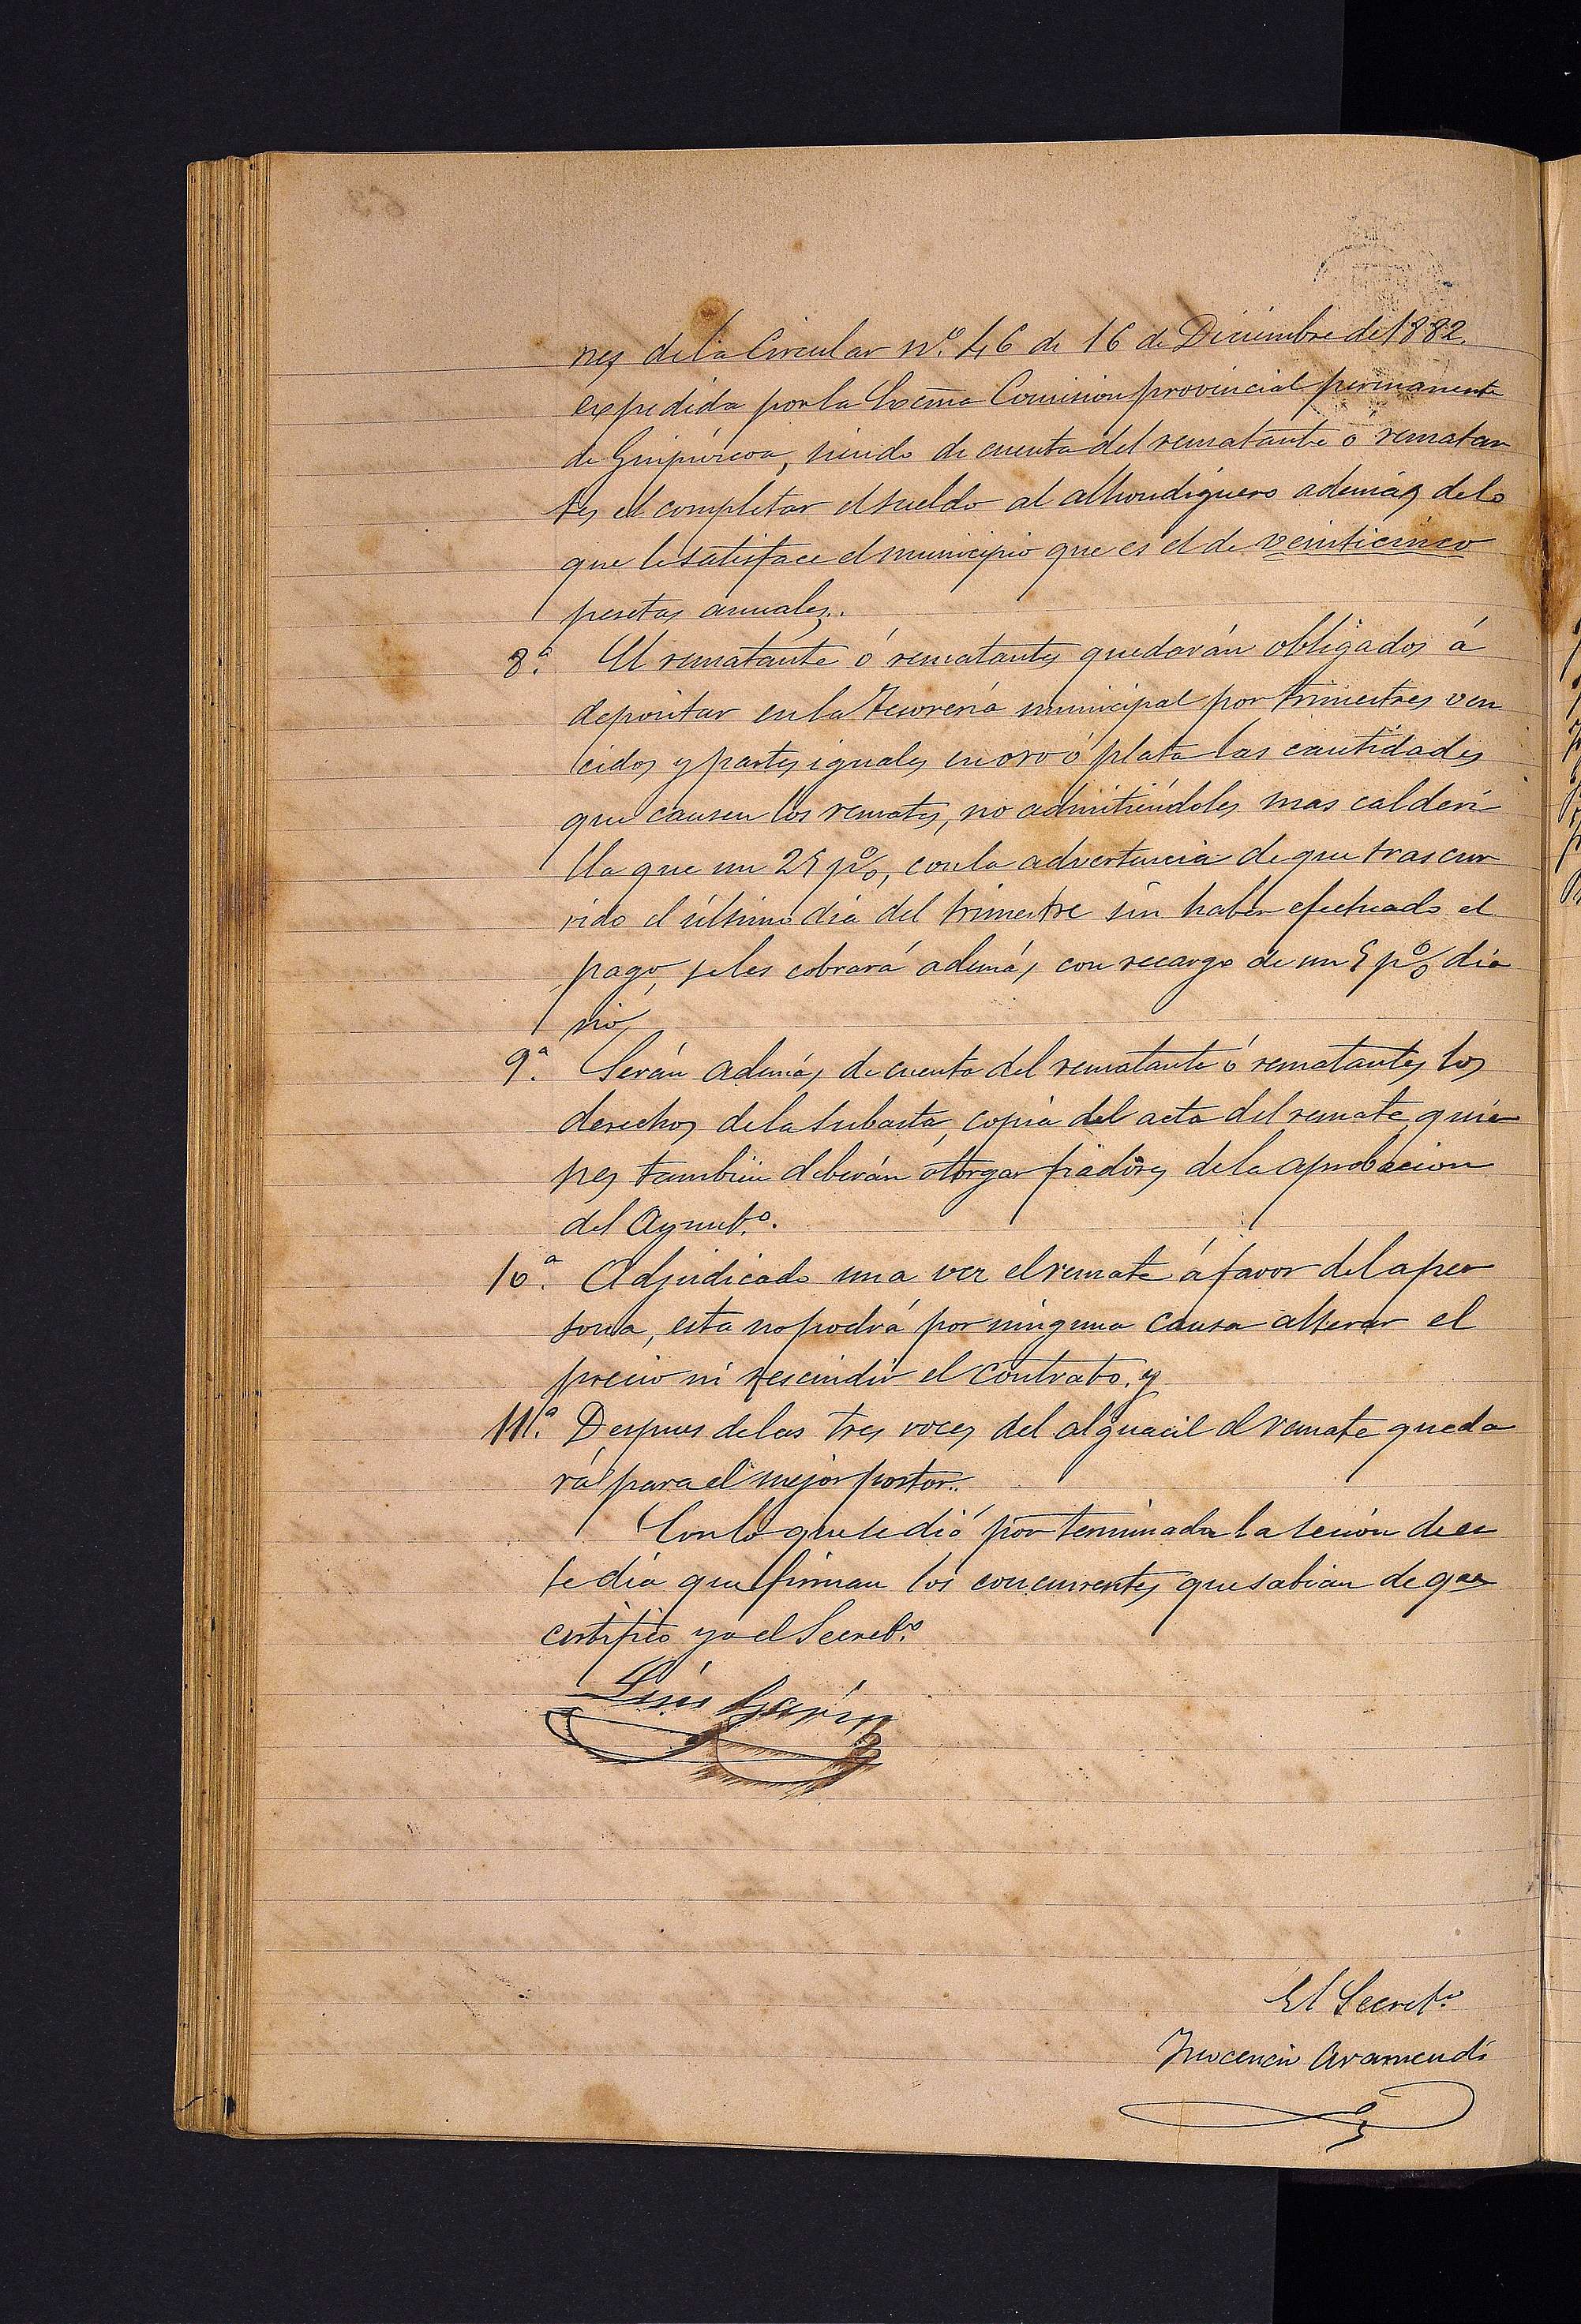 nes de la Circular n.º 46 de 16 de Diciembre de 1882.
expedida por la Excma Comision provincial permanente
de Guipúzcoa, siendo de cuenta del rematante ó rematan
tes el completar el sueldo al alhondiguero además de lo
que le satisface el municipio que es el de veinticinco
pesetas anuales.
8.ª El rematante ó rematantes quedarán obligados á
depositar en la Tesoreria municipal por trimestres ven
cidos y partes iguales en oro ó plata las cantidades
que causen los remates, no admitiéndoles mas calderi
lla que un 25 pº/o, con la advertencia de que trascur
rido el último dia del trimestre sin haber efectuado el
pago, se les cobrará además con recargo de un 5 pº/o dia
rio
9.ª Serán además de cuenta del rematante ó rematantes los
derechos de la subasta, copia del acta del remate, quie
nes tambien deberán otorgar fiadores de la aprobacion
del Ayunt.º.
10.ª Adjudicado una vez el remate á favor de la per
sona, esta no podrá por ninguna causa alterar el
precio ni rescindir el contrato. y
11.ª Despues de las tres voces del alguacil el remate queda
rá para el mejor postor.
Con lo que se dió por terminada la sesión de es
te dia que firman los concurrentes que sabian de que
certifico yo el Secret.º
Luis Garin
El Secret.º
Inocencio Aramendi